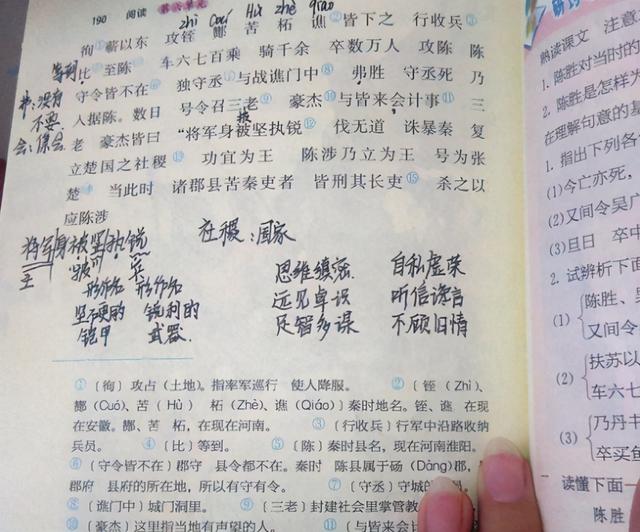 190 阅读 第六单元
zhì Cuó Hù zhè qiáo
徇①蕲以东 攻铚 酇 苦 柘 谯②皆下之 行收兵③
等到
比④至陈⑤ 车六七百乘 骑千余 卒数万人 攻陈 陈
守令皆不在⑥ 独守丞⑦与战谯门中⑧ 弗胜 守丞死 乃
弗:没有
不要
会:集会
入据陈。数日 号令召三老⑨ 豪杰⑩与皆来会计事⑪ 三
披
老 豪杰皆曰 “将军身被坚执锐⑫ 伐无道 诛暴秦 复
立楚国之社稷⑬ 功宜为王 陈涉乃立为王 号为张
楚⑭ 当此时 诸郡县苦秦吏者 皆刑其长吏⑮ 杀之以
应陈涉
将军身被坚执锐
主
“披”
形作名
坚硬的
铠甲
形作名
锐利的
武器
社稷:国家
思维缜密
远见卓识
足智多谋
自私虚荣
听信谗言
不顾旧情
①〔徇〕攻占（土地）。指率军巡行 使人降服。 ②〔铚（Zhì）、
酇（Cuó）、苦（Hù） 柘（Zhè）、谯（Qiáo）〕秦时地名。铚、谯 在现
在安徽。酇、苦 柘，在现在河南。 ③〔行收兵〕行军中沿路收纳
兵员。 ④〔比〕等到。 ⑤〔陈〕秦时县名，现在河南淮阳。
⑥〔守令皆不在〕郡守 县令都不在。秦时 陈县属于砀（Dàng）郡，
郡府 县府的所在地，所以有守有令。 ⑦〔守丞〕守城的
⑧〔谯门中〕城门洞里。 ⑨〔三老〕封建社会里掌管教
⑩〔豪杰〕这里指当地有声望的人。 ⑪〔与皆来会计
熟读课文 注意
1. 陈胜对当时的
2. 陈胜是怎样为
在理解句意的基
1. 指出下列各
(1)今亡亦死，
(2)又间令吴广
(3)旦日 卒中
2. 试辨析下面
(1) 陈胜、吴
又间令
(2) 扶苏以
车六七
(3) 乃丹书
卒买鱼
读懂下面一
陈胜